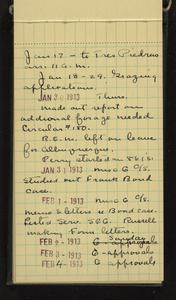 Jan 17 - to Tres Piedras
arr. 11 a.m.
Jan 18-29. Grazing
applications.
JAN 30 1913 Thurs.
Made out report on
additional forage needed
Circular #180.
R.E.M. left on leave
for Albuquerque.
Perry started on
JAN 31 1913 misc G
Studied out Frank Bond
case.
FEB 1 - 1913 misc G
memo & letters in Bond case.
Letter Serv.
making Form letters.
FEB 2 - 1913 Sunday
FEB 3 - 1913 G - approvals
FEB 4 - 1913 G approvals